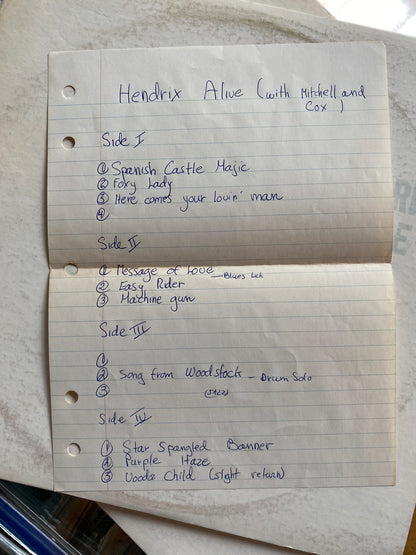 Hendrix Alive (with Mitchell and
Cox )
Side I
① Spanish Castle Majic
② Foxy Lady
③ Here comes your lovin' man
④
Side II
① Message of Love - Blues
② Easy Rider
③ Machine gun
Side III
①
② Song from Woodstock - Drum Solo
③ (JAZZ)
Side IV
① Star Spangled Banner
② Purple Haze
③ Voodo Child (slight return)